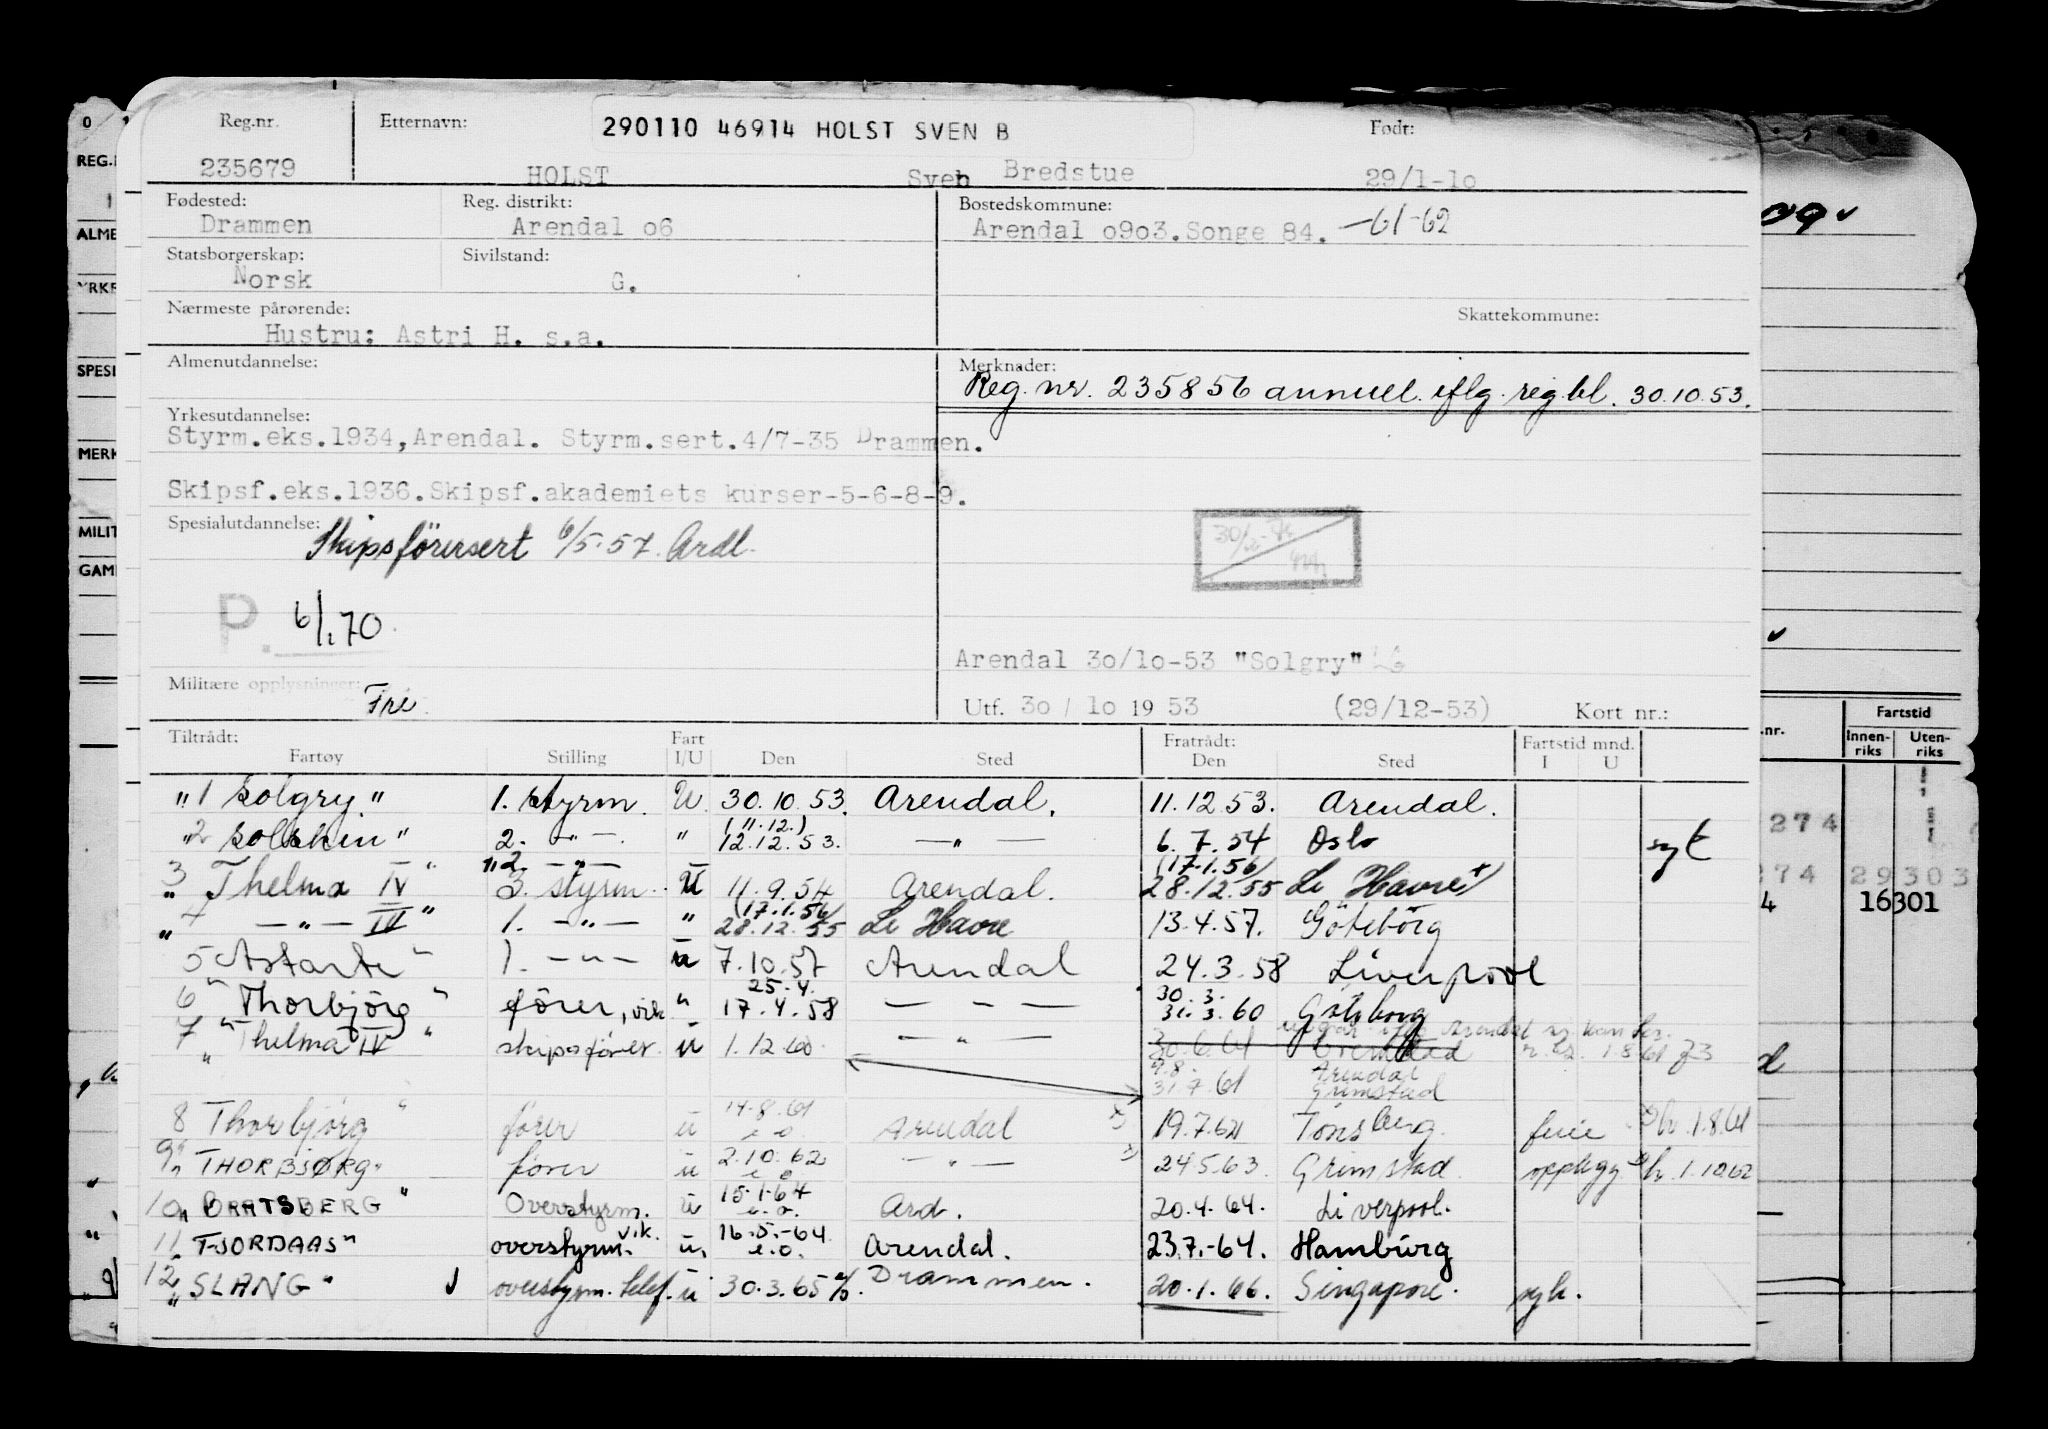 Reg.nr. Etternavn: 290110 46914 HOLST SVEN B Født:
235679 HOLST Sven Bredstue 29/1-10
Fødested: Reg. distrikt: Bostedskommune:
Drammen Arendal o6 Arendal o9o3.Songe 84. -61-62
Statsborgerskap: Sivilstand:
Norsk G.
Nærmeste pårørende: Skattekommune:
Hustru: Astri H. s.a.
Almenutdannelse: Merknader:
Reg. nr. 235856 annuel. iflg. reg.bl. 30.10.53.
Yrkesutdannelse:
Styrm.eks.1934,Arendal. Styrm.sert.4/7-35 Drammen.
Skipsf.eks.1936.Skipsf.akademiets kurser-5-6-8-9.
Spesialutdannelse: Skipsförersert 6/5-57 Ardl.
P. 6/1.70
Arendal 3o/1o-53 "Solgry"
Militære opplysninger: Fri Utf. 3o / 1o 19 53 (29/12-53) Kort nr.:
Tiltrådt: Fart Fratrådt: Fartstid mnd.
Fartøy Stilling I/U Den Sted Den Sted I U
"1 Solgry" 1. styrm. U. 30.10.53. Arendal. 11.12.53. Arendal.
"2 Solskin" 2. -"- " (11.12.) 12.12.53. -"- 6.7.54 Oslo syk
3 "Thelma IV" "2. -"- 3. styrm. U 11.9.54 Arendal. (17.1.56) 28.12.55 Le Havre
4 "-"- IV" 1. -"- " (17.1.56) 28.12.55 Le Havre 13.4.57. Göteborg
5 "Astarte" 1. -"- u 7.10.57 Arendal 24.3.58 Liverpool
6 "Thorbjörg" förer, vik " 25.4. 17.4.58 -"- 30.3. 31.3.60 Göteborg
7 "Thelma IV" skipsförer. u 1.12.60. -"- 30.6.61 Grimstad
9.8. Arendal
31.7.61 Grimstad
8 Thorbjörg" förer u 14.8.61 e.o. Arendal 19.7.62 Tönsberg. ferie 1.8.61
9 "THORBJØRG" förer u 2.10.62 e.o. -"- 24.5.63. Grimstad. opplegg 1.10.62
10 "BRATSBERG" Overstyrm. u 15.1.64 e.o. Ard. 20.4.64. Liverpool.
11 "FJORDAAS" overstyrm. vik. u. 16.5.-64. e.o. Arendal. 23.7.-64. Hamburg
12 "SLANG" overstyrm. u 30.3.65 Drammen. 20.1.66. Singapore. syk.
REG.
ALME
YRKE
SPESI
MERK
MILIT
GAM
.nr. Fartstid
Innen-riks Uten-riks
274
274 29303
4 16301